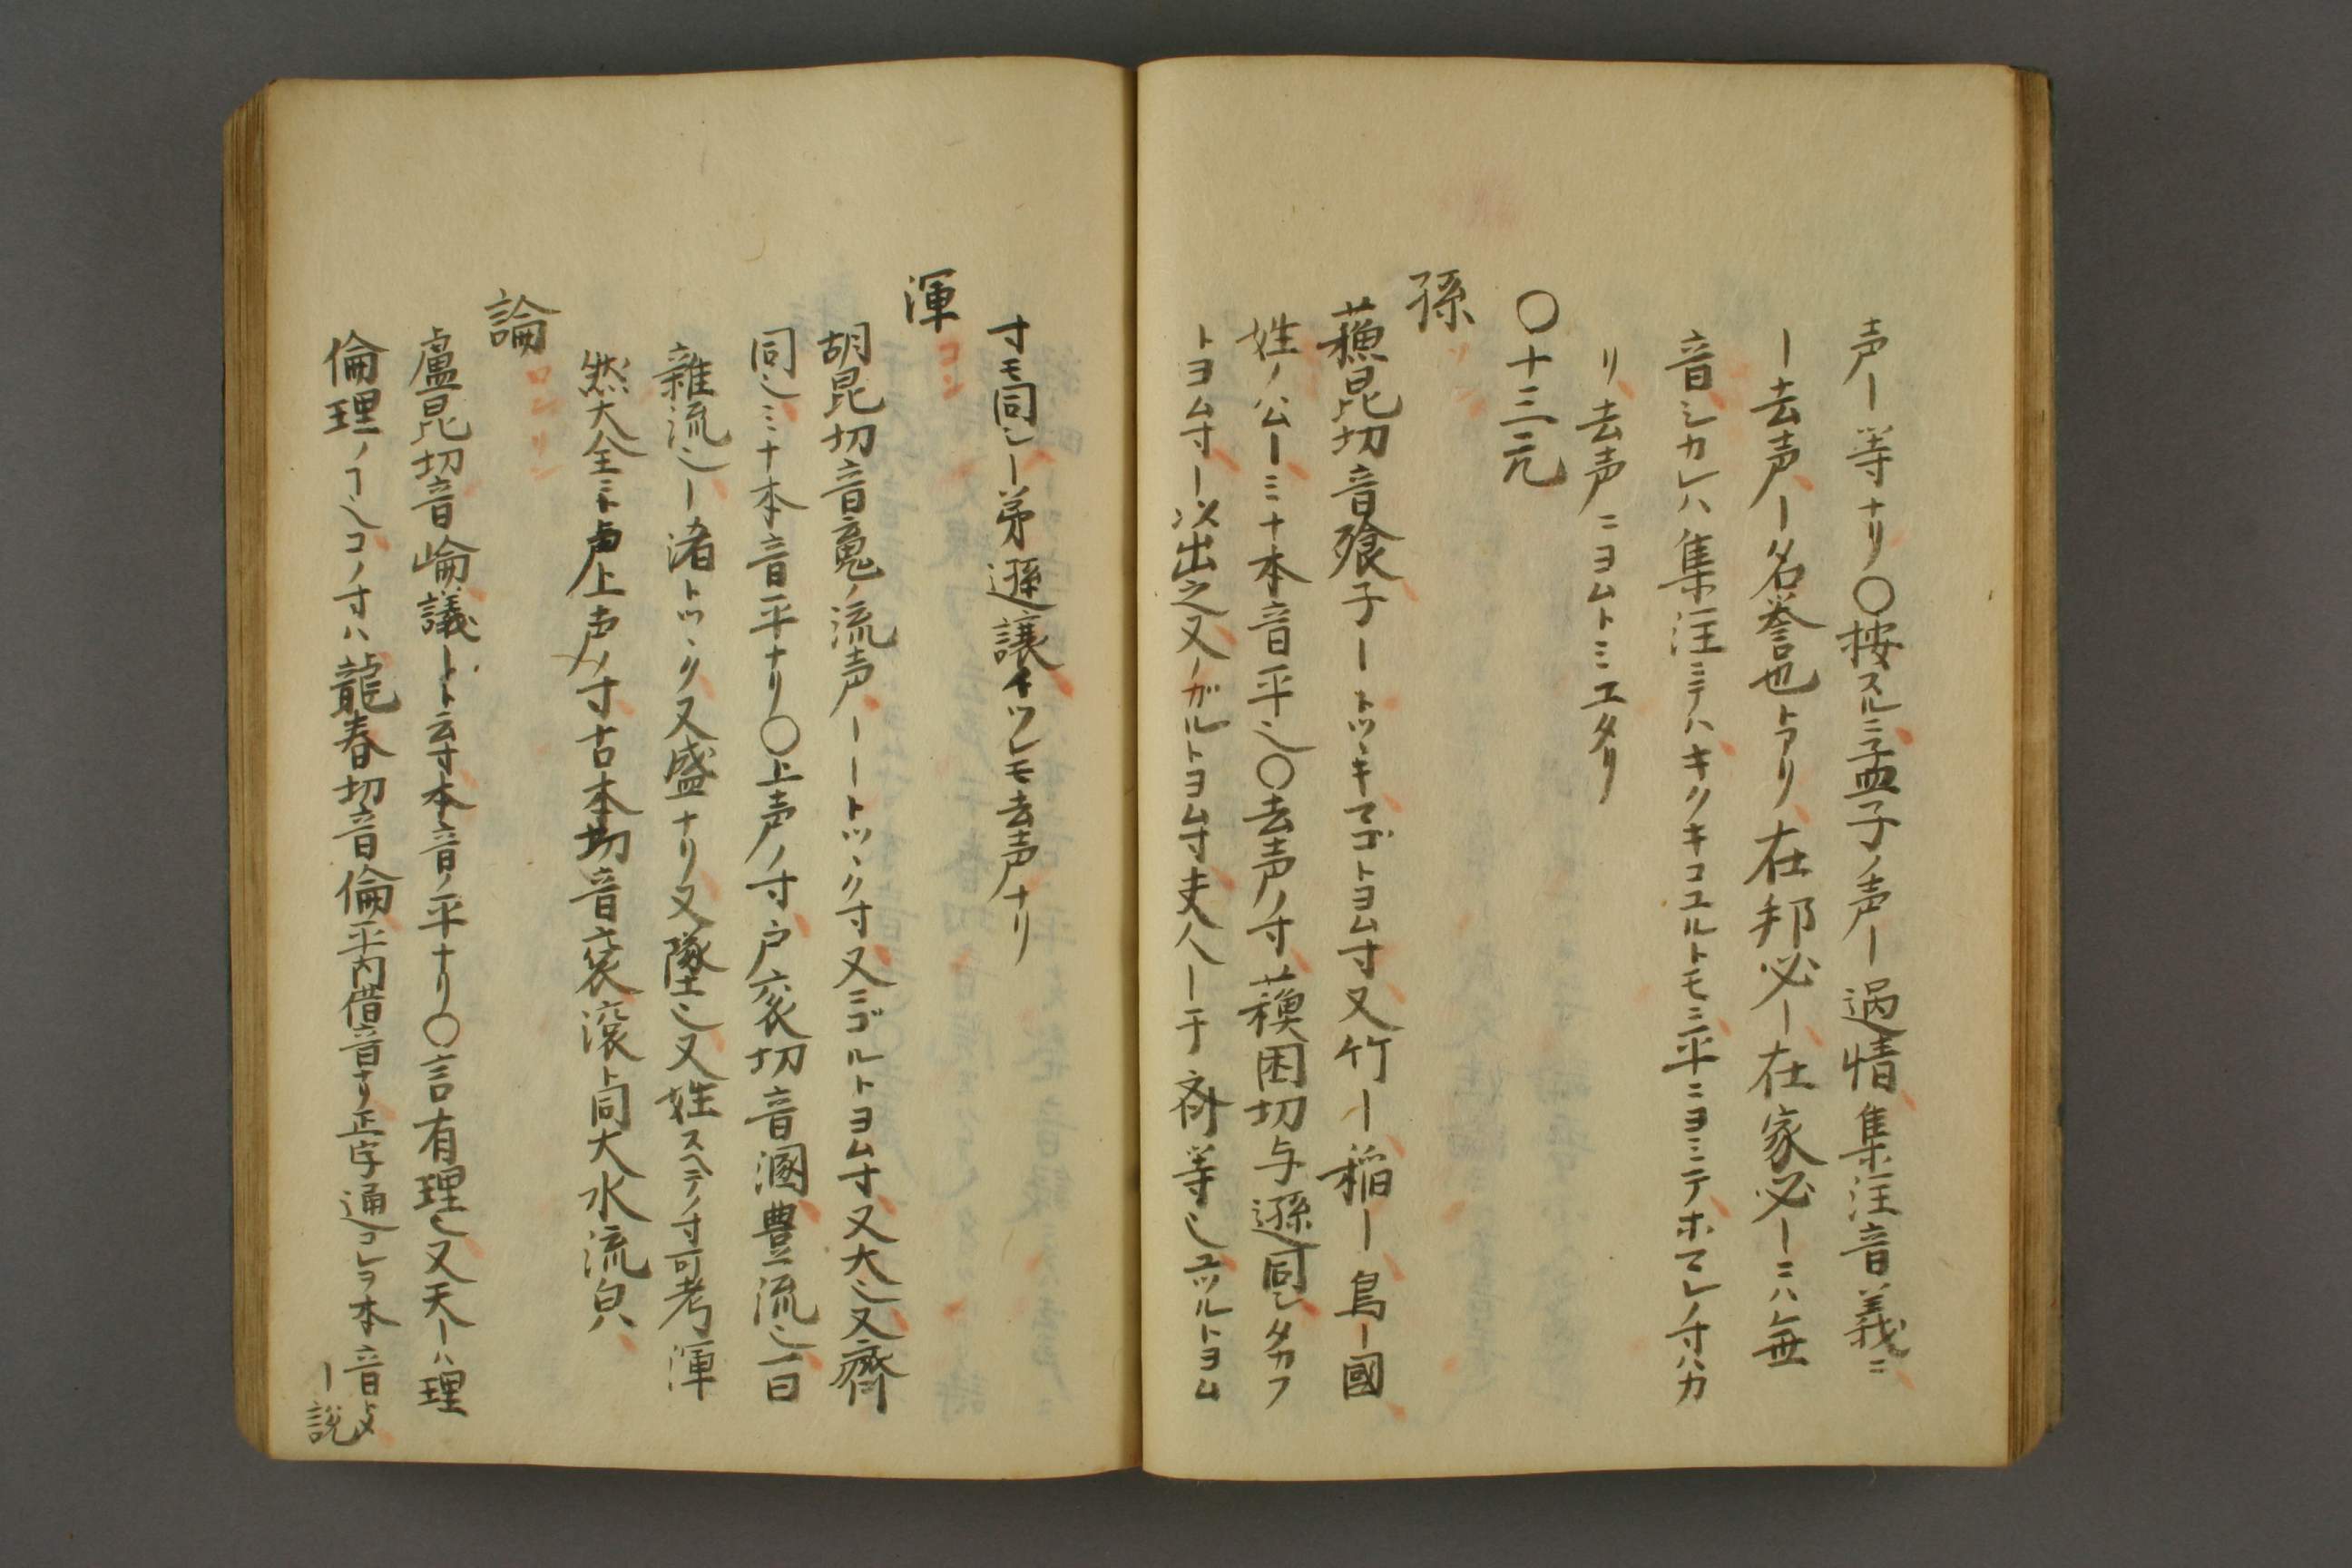 声ー等ナリ〇按スルニ孟子ノ声ー過情集注音義ニ
ー去声ー名誉也トアリ在邦必ー在家必ーニハ無
音シカレハ集注ニテハキクキコユルトモニ平ニヨミテホマレノ寸ハカ
リ去声ニヨムトミエタリ
〇十三元
孫
ソン
蘓昆切音飱子ートツヽキマゴトヨム寸又竹ー稲ー鳥ー國
姓ノ公ーミナ本音平也〇去声ノ寸蘓困切与遜同シタカフ
トヨム寸ー以出之又ノガルトヨム寸夫人ー于斉等也ユツルトヨム
寸モ同シー弟遜譲イツレモ去声ナリ
渾
コン
胡昆切音䰟ノ流声ーートツヽク寸又ニゴルトヨム寸又大也又齊
同也ミナ本音平ナリ〇上声ノ寸戸袞切音溷豊流也一曰
雜流也ー渚トツヽク又盛ナリ又墜也又姓スヘテノ寸可考渾
然大全ミト上声ノ寸古本切音袞滚ト同大水流皃
論
ロン リン
盧昆切音崘議ート云寸本音ノ平ナリ〇言有理也又天ーハ理
倫理ノー也コノ寸ハ龍春切音倫平内借音ナリ正字通コレヲ本音ト乄
ー説